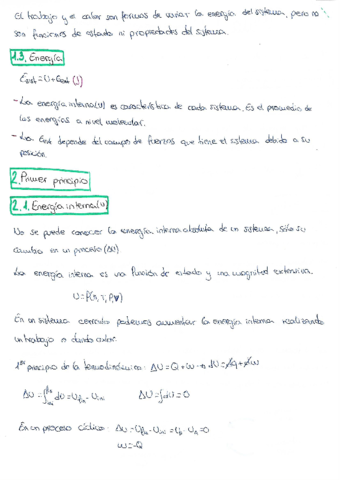 El trabajo y el calor son formas de variar la energía del sistema, pero no
son funciones de estado ni propiedades del sistema.
1.3. Energía
Esist = U + Eext (1)
- La energía interna(U) es característica de cada sistema. Es el promedio de
las energías a nivel molecular.
- La Eext depende del campo de fuerzas que tiene el sistema debido a su
posición.
2. Primer principio
2.1. Energía interna(U)
No se puede conocer la energía interna absoluta de un sistema, solo su
cambio en un proceso (ΔU)
La energía interna es una función de estado y una magnitud extensiva.
U = f(n, T, P, V)
En un sistema cerrado podemos aumentar la energía interna realizando
un trabajo o dando calor.
1er principio de la termodinámica: ΔU = Q + W → dU = đq + đw
ΔU = ∫ dU = Ufin - Uinic ΔU = ∮dU = 0
En un proceso cíclico: ΔU = Ufin - Uinic = UA - UA = 0
W = -Q